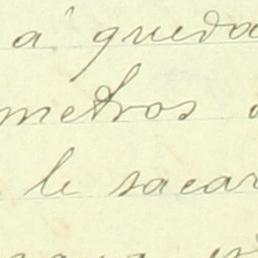 á queda
metros
le sacar